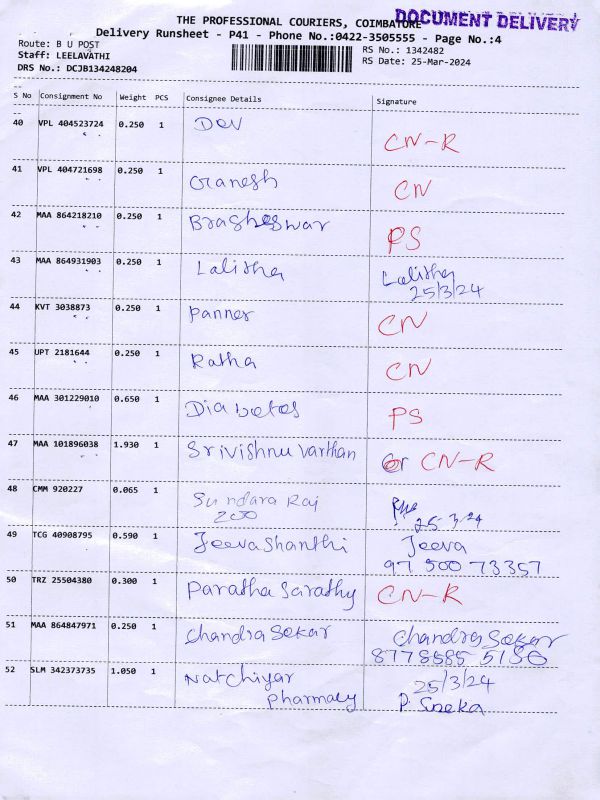 THE PROFESSIONAL COURIERS, COIMBATORE
DOCUMENT DELIVERY
Delivery Runsheet - P41 - Phone No.:0422-3505555 - Page No.:4
Route: B U POST
RS No.: 1342482
Staff: LEELAVATHI
RS Date: 25-Mar-2024
DRS No.: DCJB134248204
S No Consignment No Weight PCS Consignee Details Signature
40 VPL 404523724 0.250 1 Dev CN-R
41 VPL 404721698 0.250 1 Granesh CN
42 MAA 864218210 0.250 1 Bragheswar PS
43 MAA 864931903 0.250 1 Lalitha Lalitha
25/3/24
44 KVT 3038873 0.250 1 Panner CN
45 UPT 2181644 0.250 1 Ratha CN
46 MAA 301229010 0.650 1 Diabetes PS
47 MAA 101896038 1.930 1 Srivishnu varthan CN-R
48 CMM 920227 0.065 1 Sundara Raj
200 25-3-24
49 TCG 40908795 0.590 1 Jeevashanthi Jeeva
97 500 73357
50 TRZ 25504380 0.300 1 Paratha Sarathy CN-R
51 MAA 864847971 0.250 1 Chandra Sekar Chandra Sekar
52 SLM 342373735 1.050 1 Natchiyar 25/3/24
Pharmacy P. Sneka